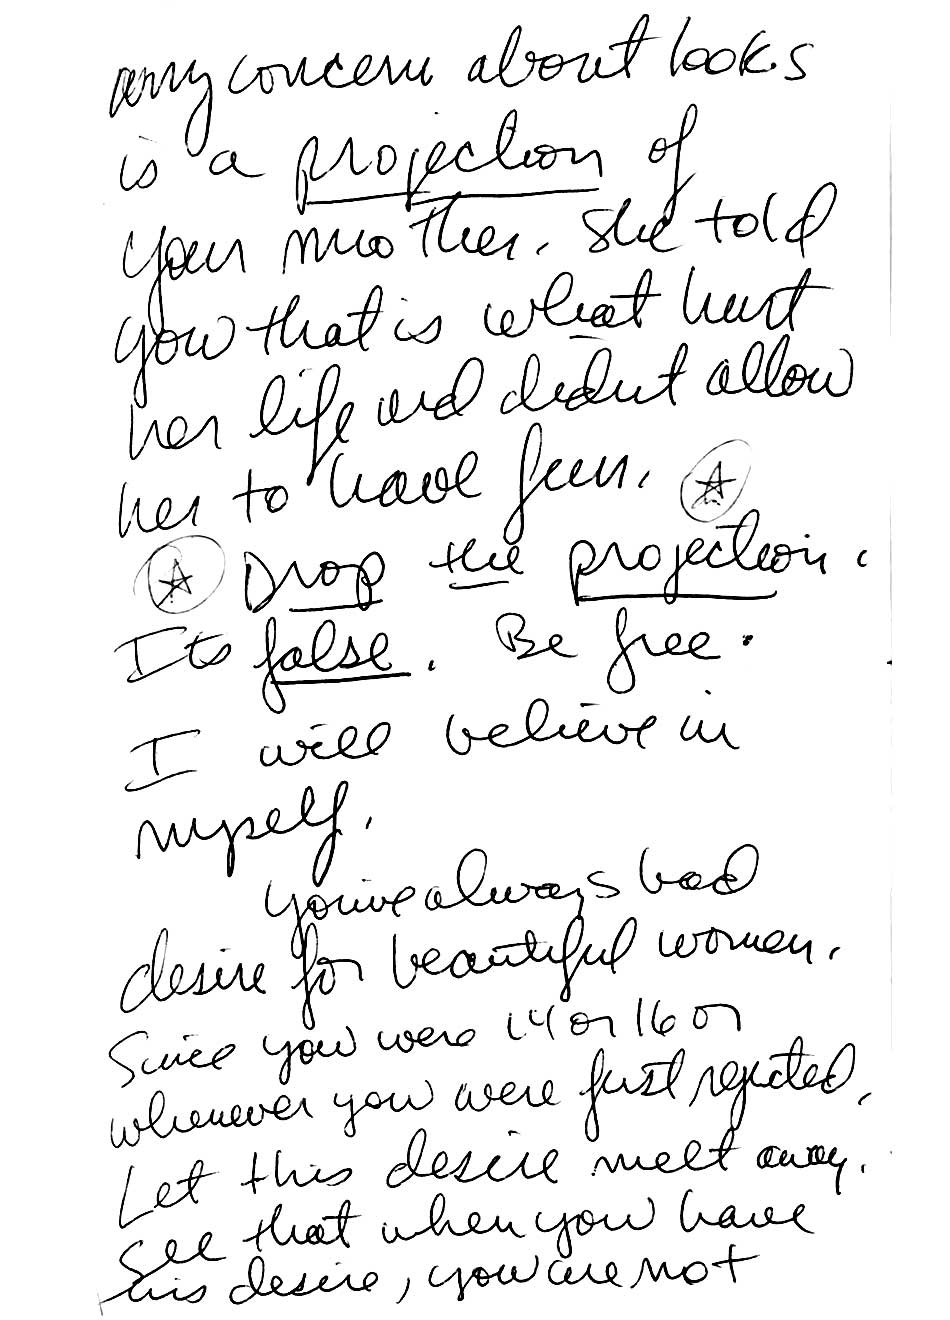 any concern about looks
is a projection of
your mother. She told
you that is what hurt
her life and didnt allow
her to have fun.
Drop the projection.
Its false. Be free.
I will believe in
myself.
You've always had
desire for beautiful women.
Since you were 14 or 16 or
whenever you were first rejected.
Let this desire melt away.
See that when you have
this desire, you are not